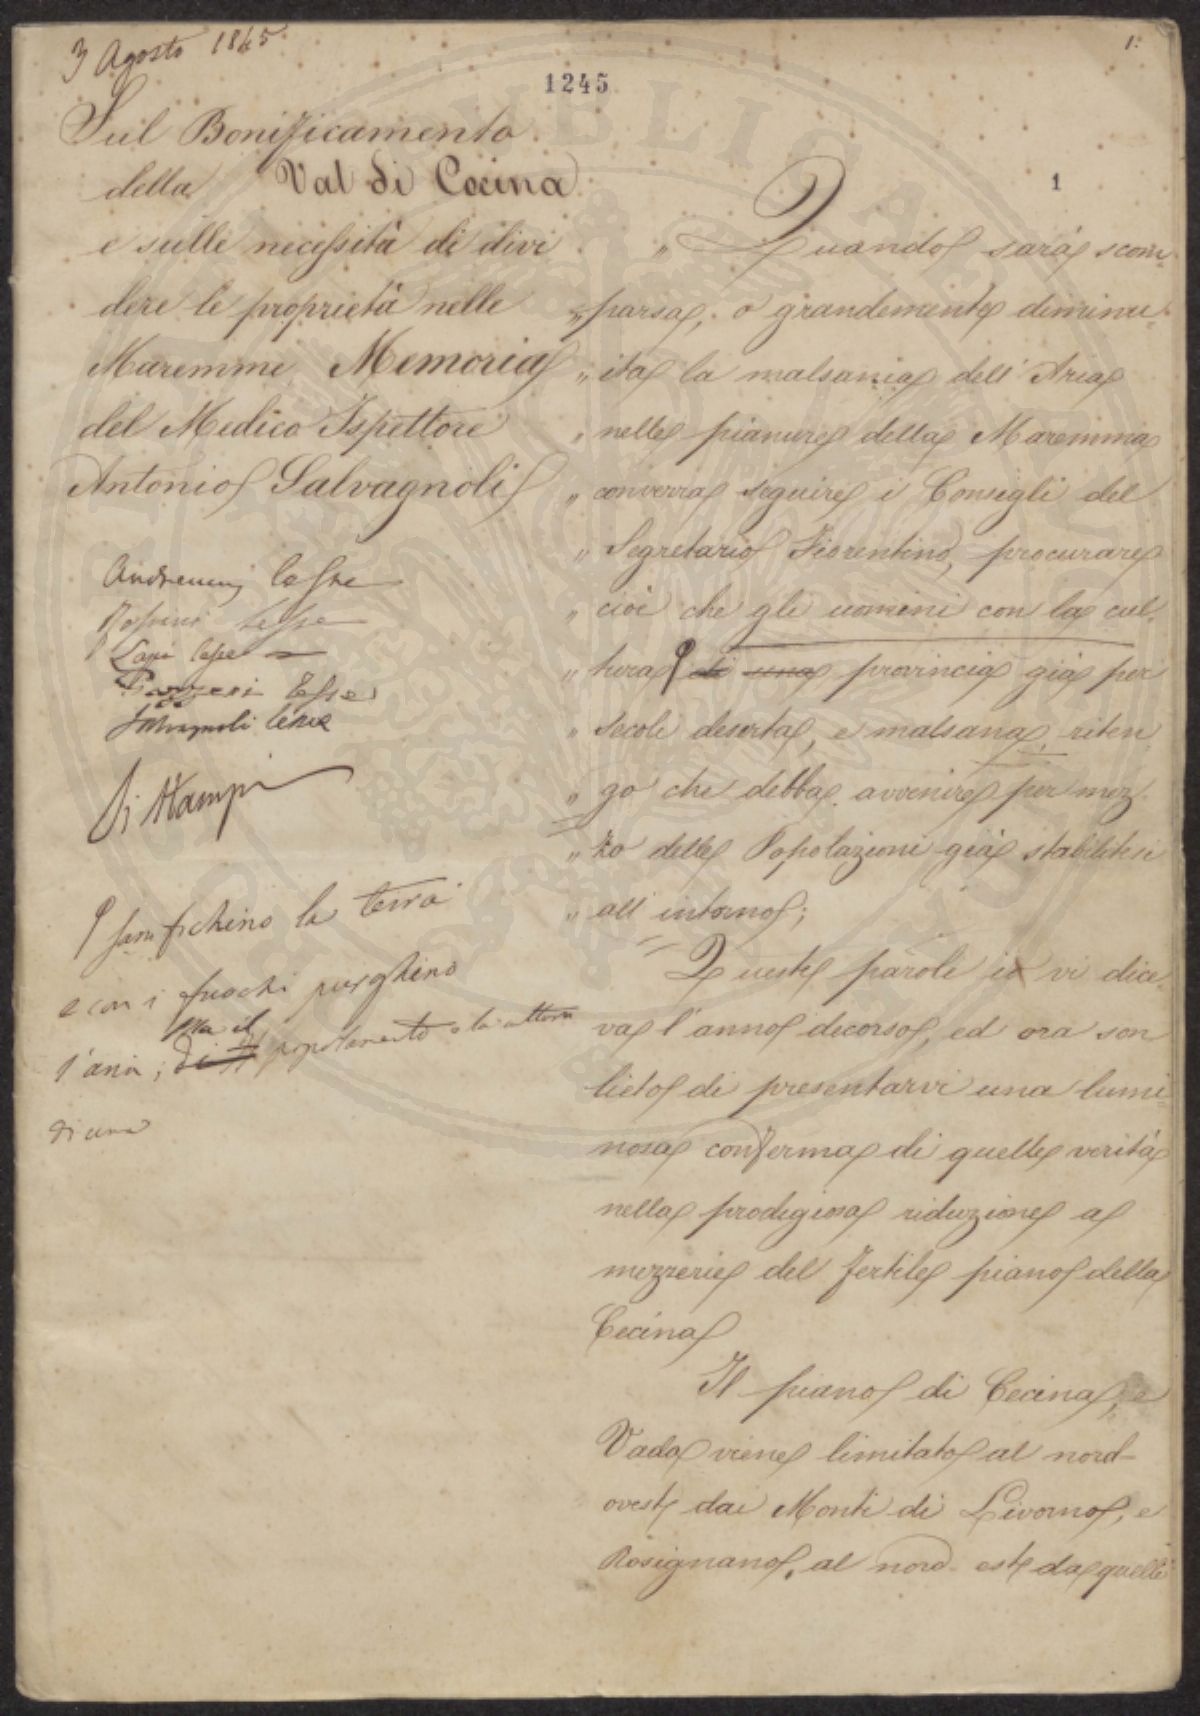 3 Agosto 1845
1.
1245
Sul Bonificamento
della Val di Cecina
e sulle necessità di divi
dere le proprietà nelle
Maremme Memoria
del Medico Ispettore
Antonio Salvagnoli
lesse
lesse
Lapi lesse
lesse
Salvagnoli lesse
Si Stampi
la terra
e con i fuochi purghino
l'aria; ma il popolamento o la cultura
di una
1
„ Quando sarà scom-
„ parsa, o grandemente diminu-
„ ita la malsania dell' Aria
„ nelle pianure della Maremma
„ converrà seguire i Consigli del
„ Segretario Fiorentino, procurare
„ cioè che gli uomini con la cul-
„ tura di una provincia già per
„ secoli deserta, e malsana, riten
„ go che debba avvenire per mez-
„ zo delle Popolazioni già stabilitesi
„ all' intorno;
Queste parole io vi dice-
va l'anno decorso, ed ora son
lieto di presentarvi una lumi-
nosa conferma di quelle verità
nella prodigiosa riduzione a
mezzerie del fertile piano della
Cecina
Il piano di Cecina, e
Vada viene limitato al nord-
ovest dai Monti di Livorno, e
Rosignano, al nord-est da quelli